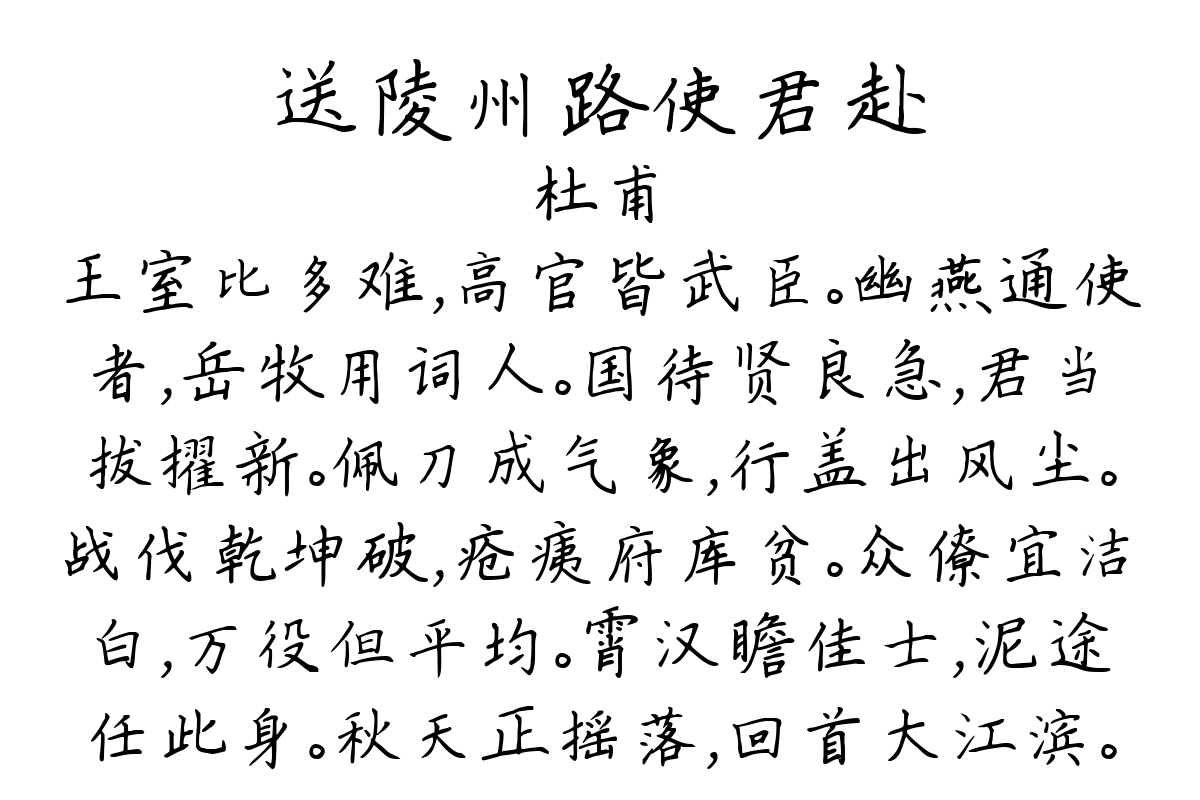 送陵州路使君赴
杜甫
王室比多难,高官皆武臣。幽燕通使
者,岳牧用词人。国待贤良急,君当
拔擢新。佩刀成气象,行盖出风尘。
战伐乾坤破,疮痍府库贫。众僚宜洁
白,万役但平均。霄汉瞻佳士,泥途
任此身。秋天正摇落,回首大江滨。